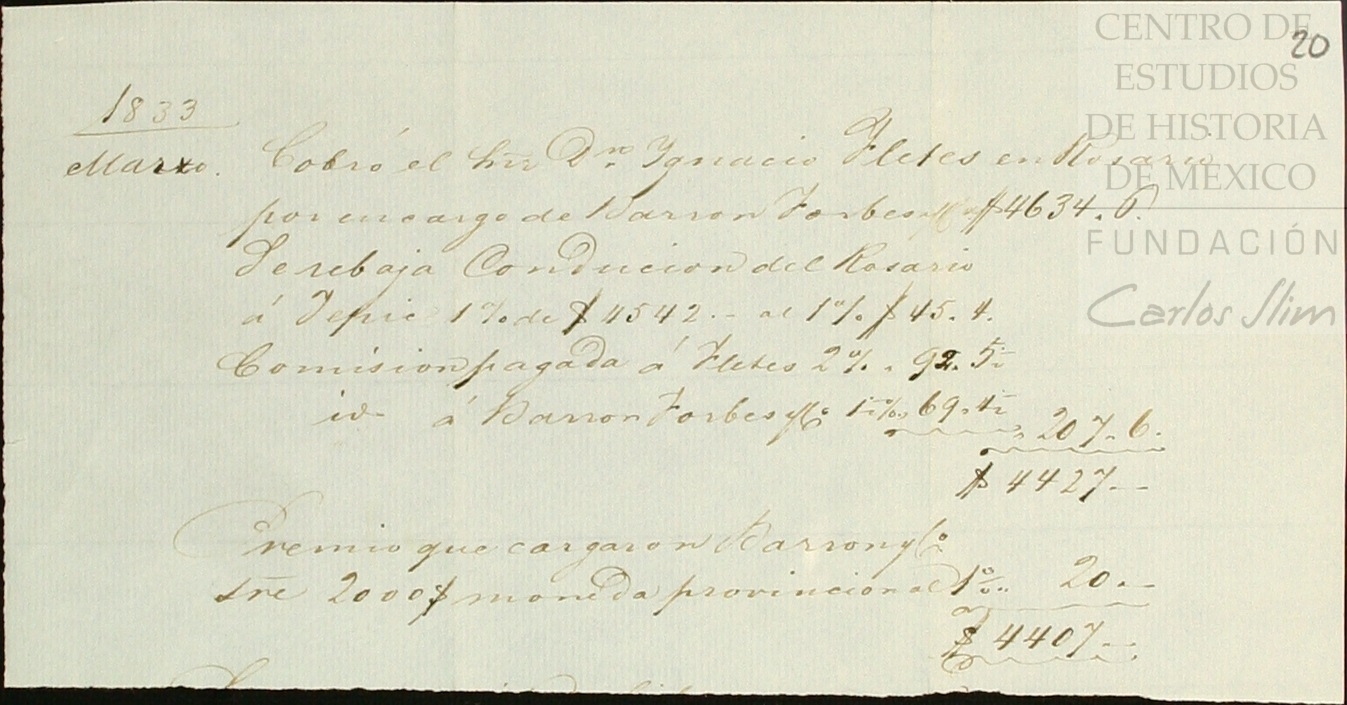 CENTRO DE
ESTUDIOS
DE HISTORIA
DE MEXICO
FUNDACIÓN
Carlos Slim
20
1833
Marzo. Cobró el Sr. Dn. Ygnacio Fletes en Rosario
por encargo de Barron Forbes y Ca $4634.6.
Se rebaja Conducion del Rosario
á Tepic 1% de $4542.- al 1% $45.4.
Comision pagada á Fletes 2% . 92.5½
id á Barron Forbes y Co 1½% 69.4½
207.6.
$ 4427--
Premio que cargaron Barron y Co.
sre 2000$ moneda provincional 1%.. 20.-
$ 4407--